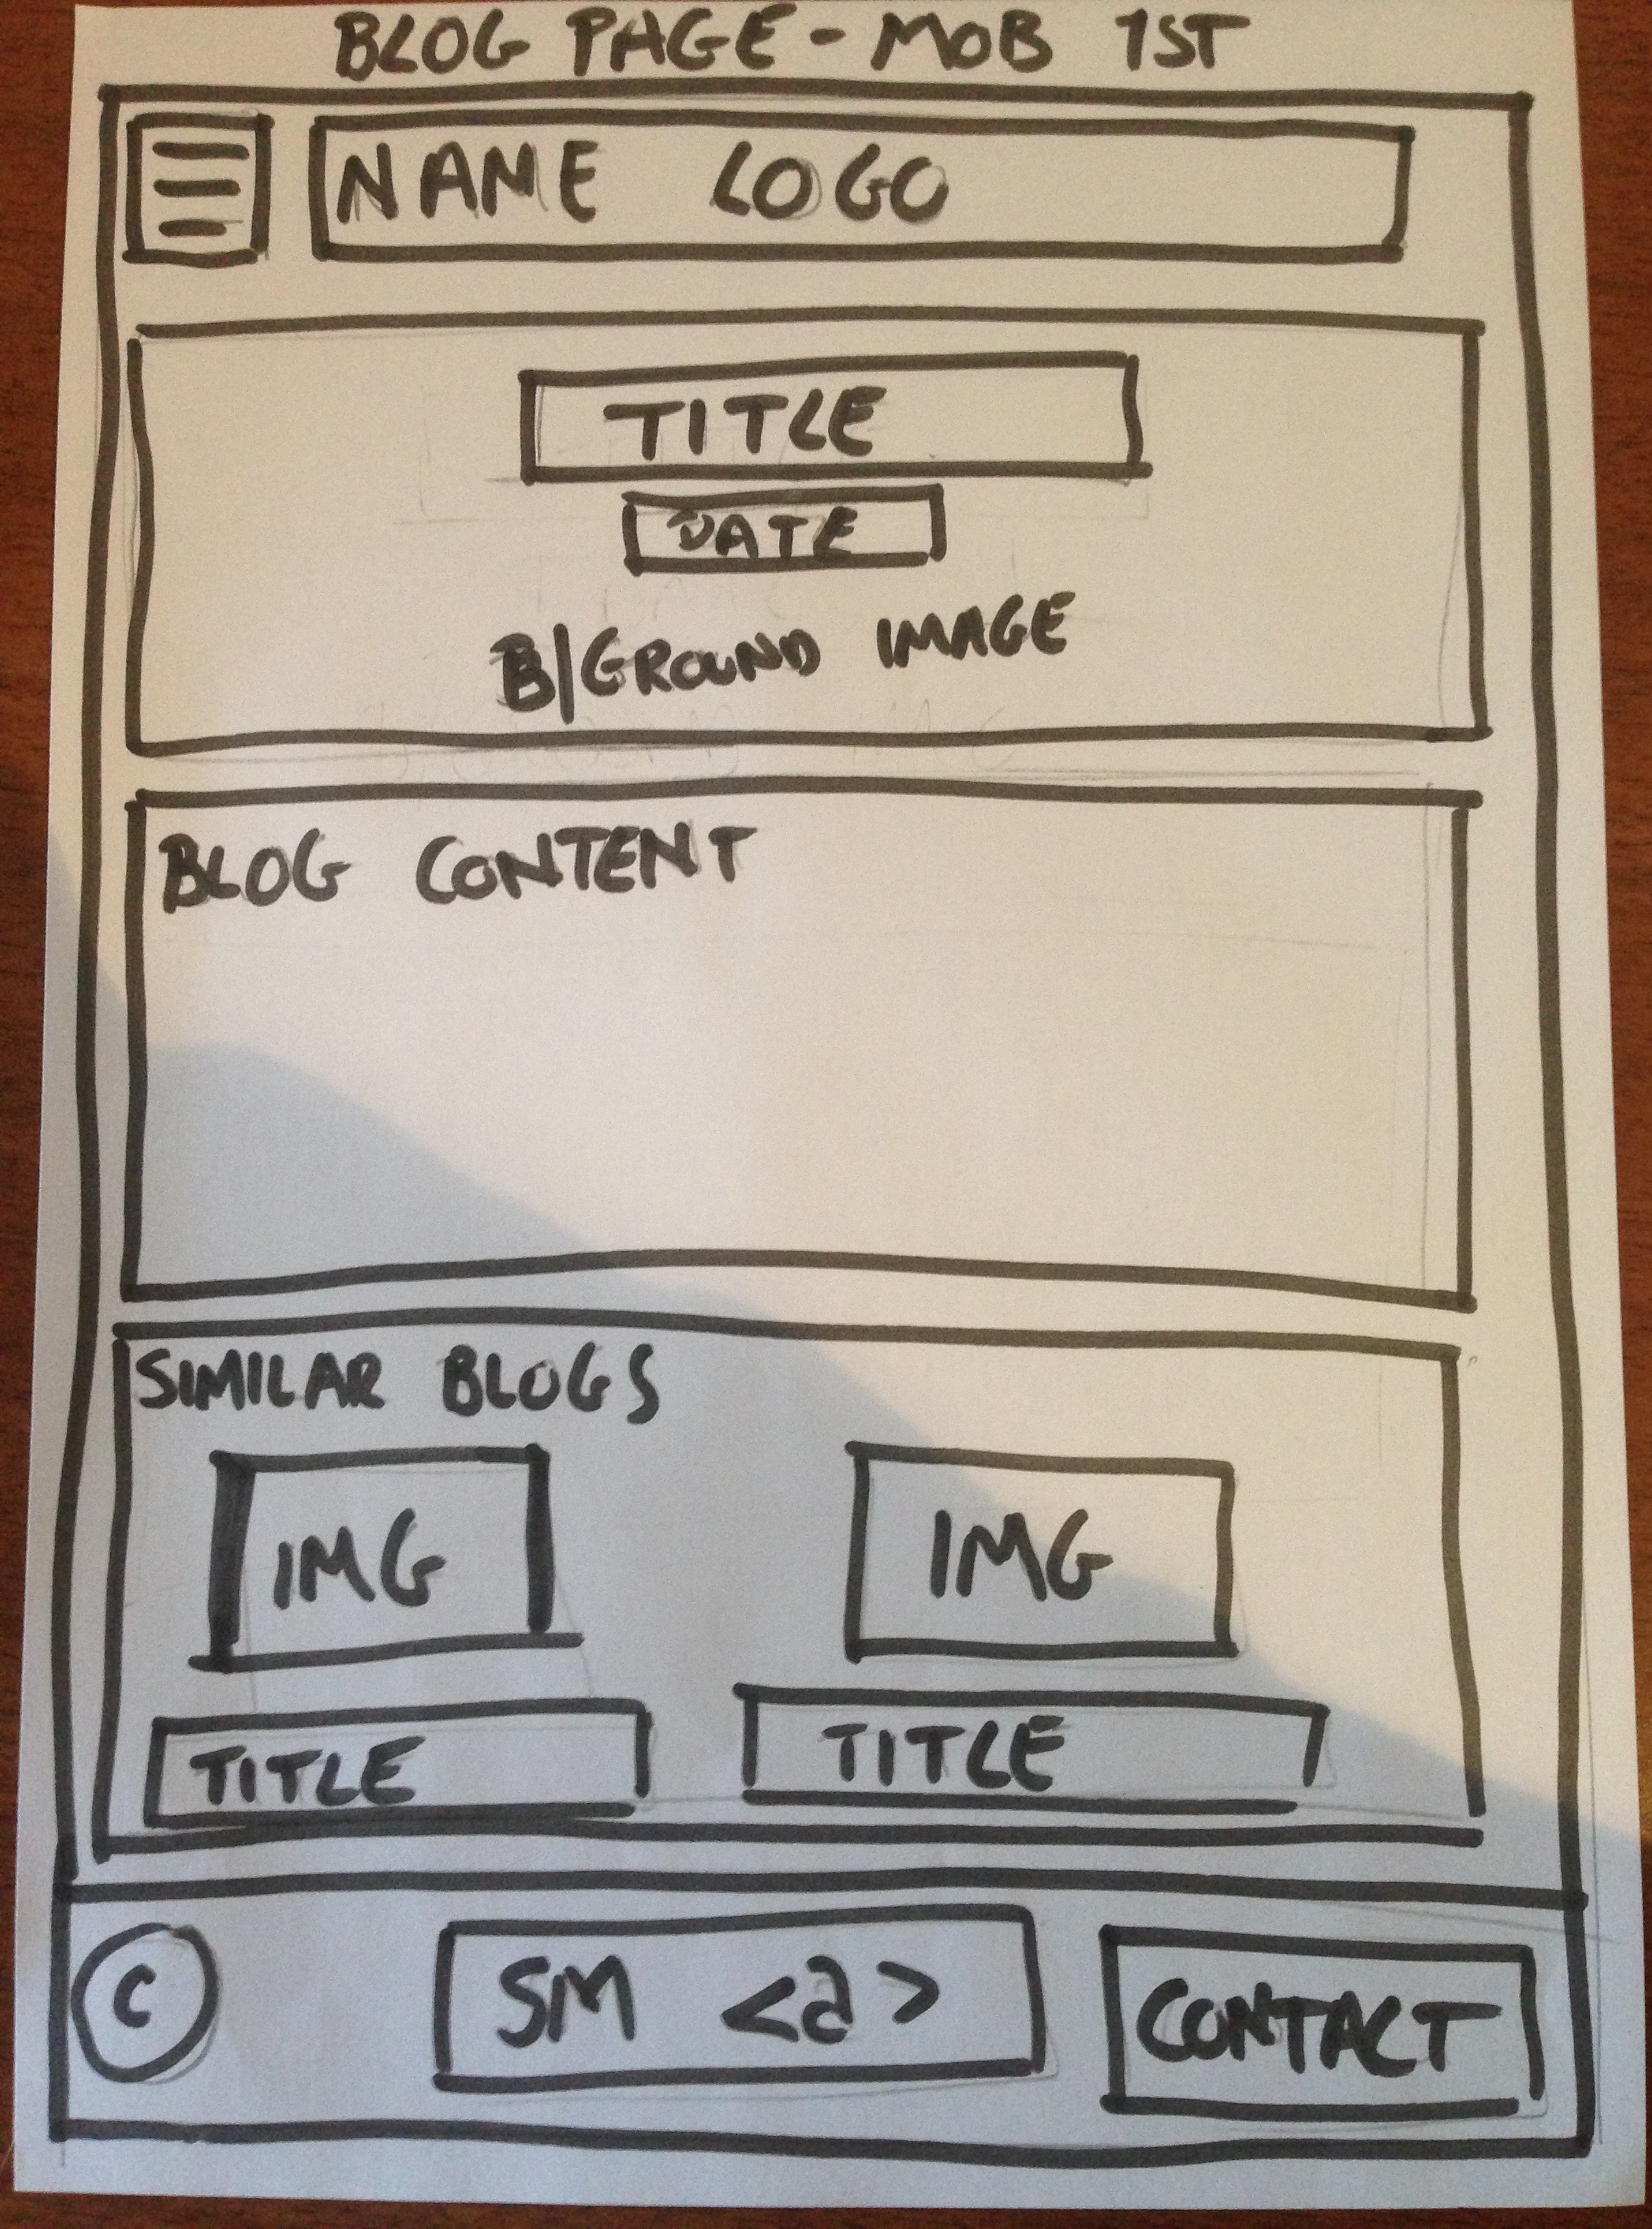 BLOG PAGE - MOB 1ST
NAME LOGO
TITLE
DATE
B/GROUND IMAGE
BLOG CONTENT
SIMILAR BLOGS
IMG IMG
TITLE TITLE
C SM <a> CONTACT